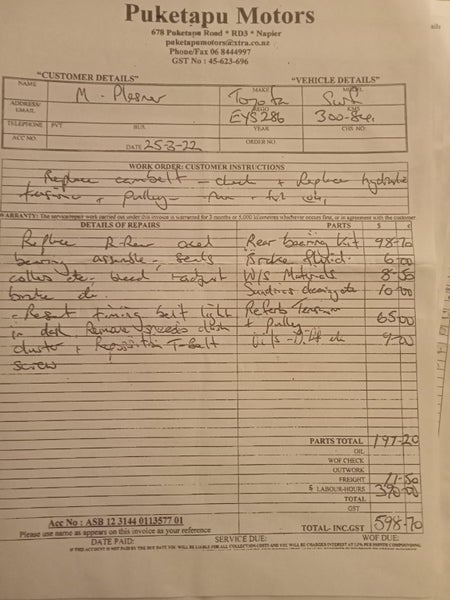 Puketapu Motors
678 Puketapu Road * RD3 * Napier
puketapumotors@xtra.co.nz
Phone/Fax 06 8444997
GST No : 45-623-696
"CUSTOMER DETAILS" "VEHICLE DETAILS"
NAME M. MAKE Toyota MODEL Surf
ADDRESS/ EMAIL REGO EYS286 KMS
TELEPHONE PVT BUS YEAR CHS NO:
ACC NO. DATE 25-3-22 ORDER NO.
WORK ORDER: CUSTOMER INSTRUCTIONS
Replace cambelt - check + Replace hydraulic
tensioner + pulley -
WARRANTY: The service/repair work carried out under this invoice is warranted for 3 months or 5,000 kilometres whichever occurs first, or in agreement with the customer
DETAILS OF REPAIRS PARTS $ c
Replace R-Rear axel Rear bearing Kit 98-70
bearing assemble - seals Brake Fluid 6-00
collars etc - bleed + adjust W/S Materials 8-50
brake etc. Sundries cleaning etc 10-00
- Reset timing belt light Refurb Tensioner
in dash. Remove speedo dash + pulley 65-00
cluster + Reposition T-Belt 9-00
screw
PARTS TOTAL 197-20
OIL
WOF CHECK
OUTWORK
FREIGHT 11-50
5 LABOUR-HOURS 390-00
TOTAL
GST
Acc No : ASB 12 3144 0113577 01
Please use name as appears on this invoice as your reference
TOTAL- INC.GST 598-70
DATE PAID: SERVICE DUE: WOF DUE:
IF THIS ACCOUNT IS NOT PAID BY THE DUE DATE YOU WILL BE LIABLE FOR ALL COLLECTION COSTS AND YOU WILL BE CHARGED INTEREST AT 1.5% PER MONTH COMPOUNDING